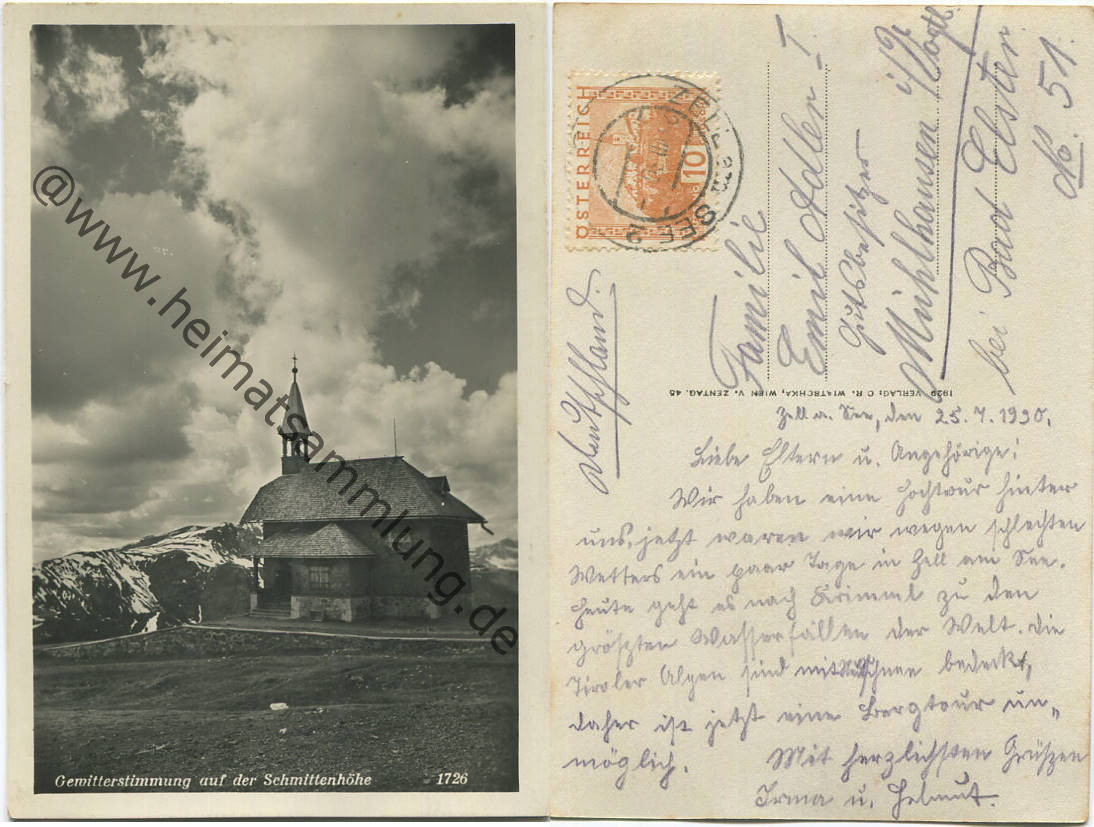 @www.heimatsammlung.de
Gewitterstimmung auf der Schmittenhöhe 1726
ÖSTERREICH
10
ZELL am SEE 2
Familie
Emil Adler I
Gutsbesitzer
Mühlhausen i/Vogtl.
bei Bad Elster
No. 51.
Deutschland.
1929 VERLAG: C. R. WIATSCHKA, WIEN V. ZENTAG. 45
Zell a. See, den 25.7.1930.
Liebe Eltern u. Angehörige!
Wir haben eine Hochtour hinter
uns, jetzt waren wir wegen schlechten
Wetters ein paar Tage in Zell am See.
Heute geht es nach Krimml zu den
größten Wasserfällen der Welt. Die
Tiroler Alpen sind mit Neuschnee bedeckt,
daher ist jetzt eine Bergtour un-
möglich. Mit herzlichsten Grüßen
Irma u. Helmut.